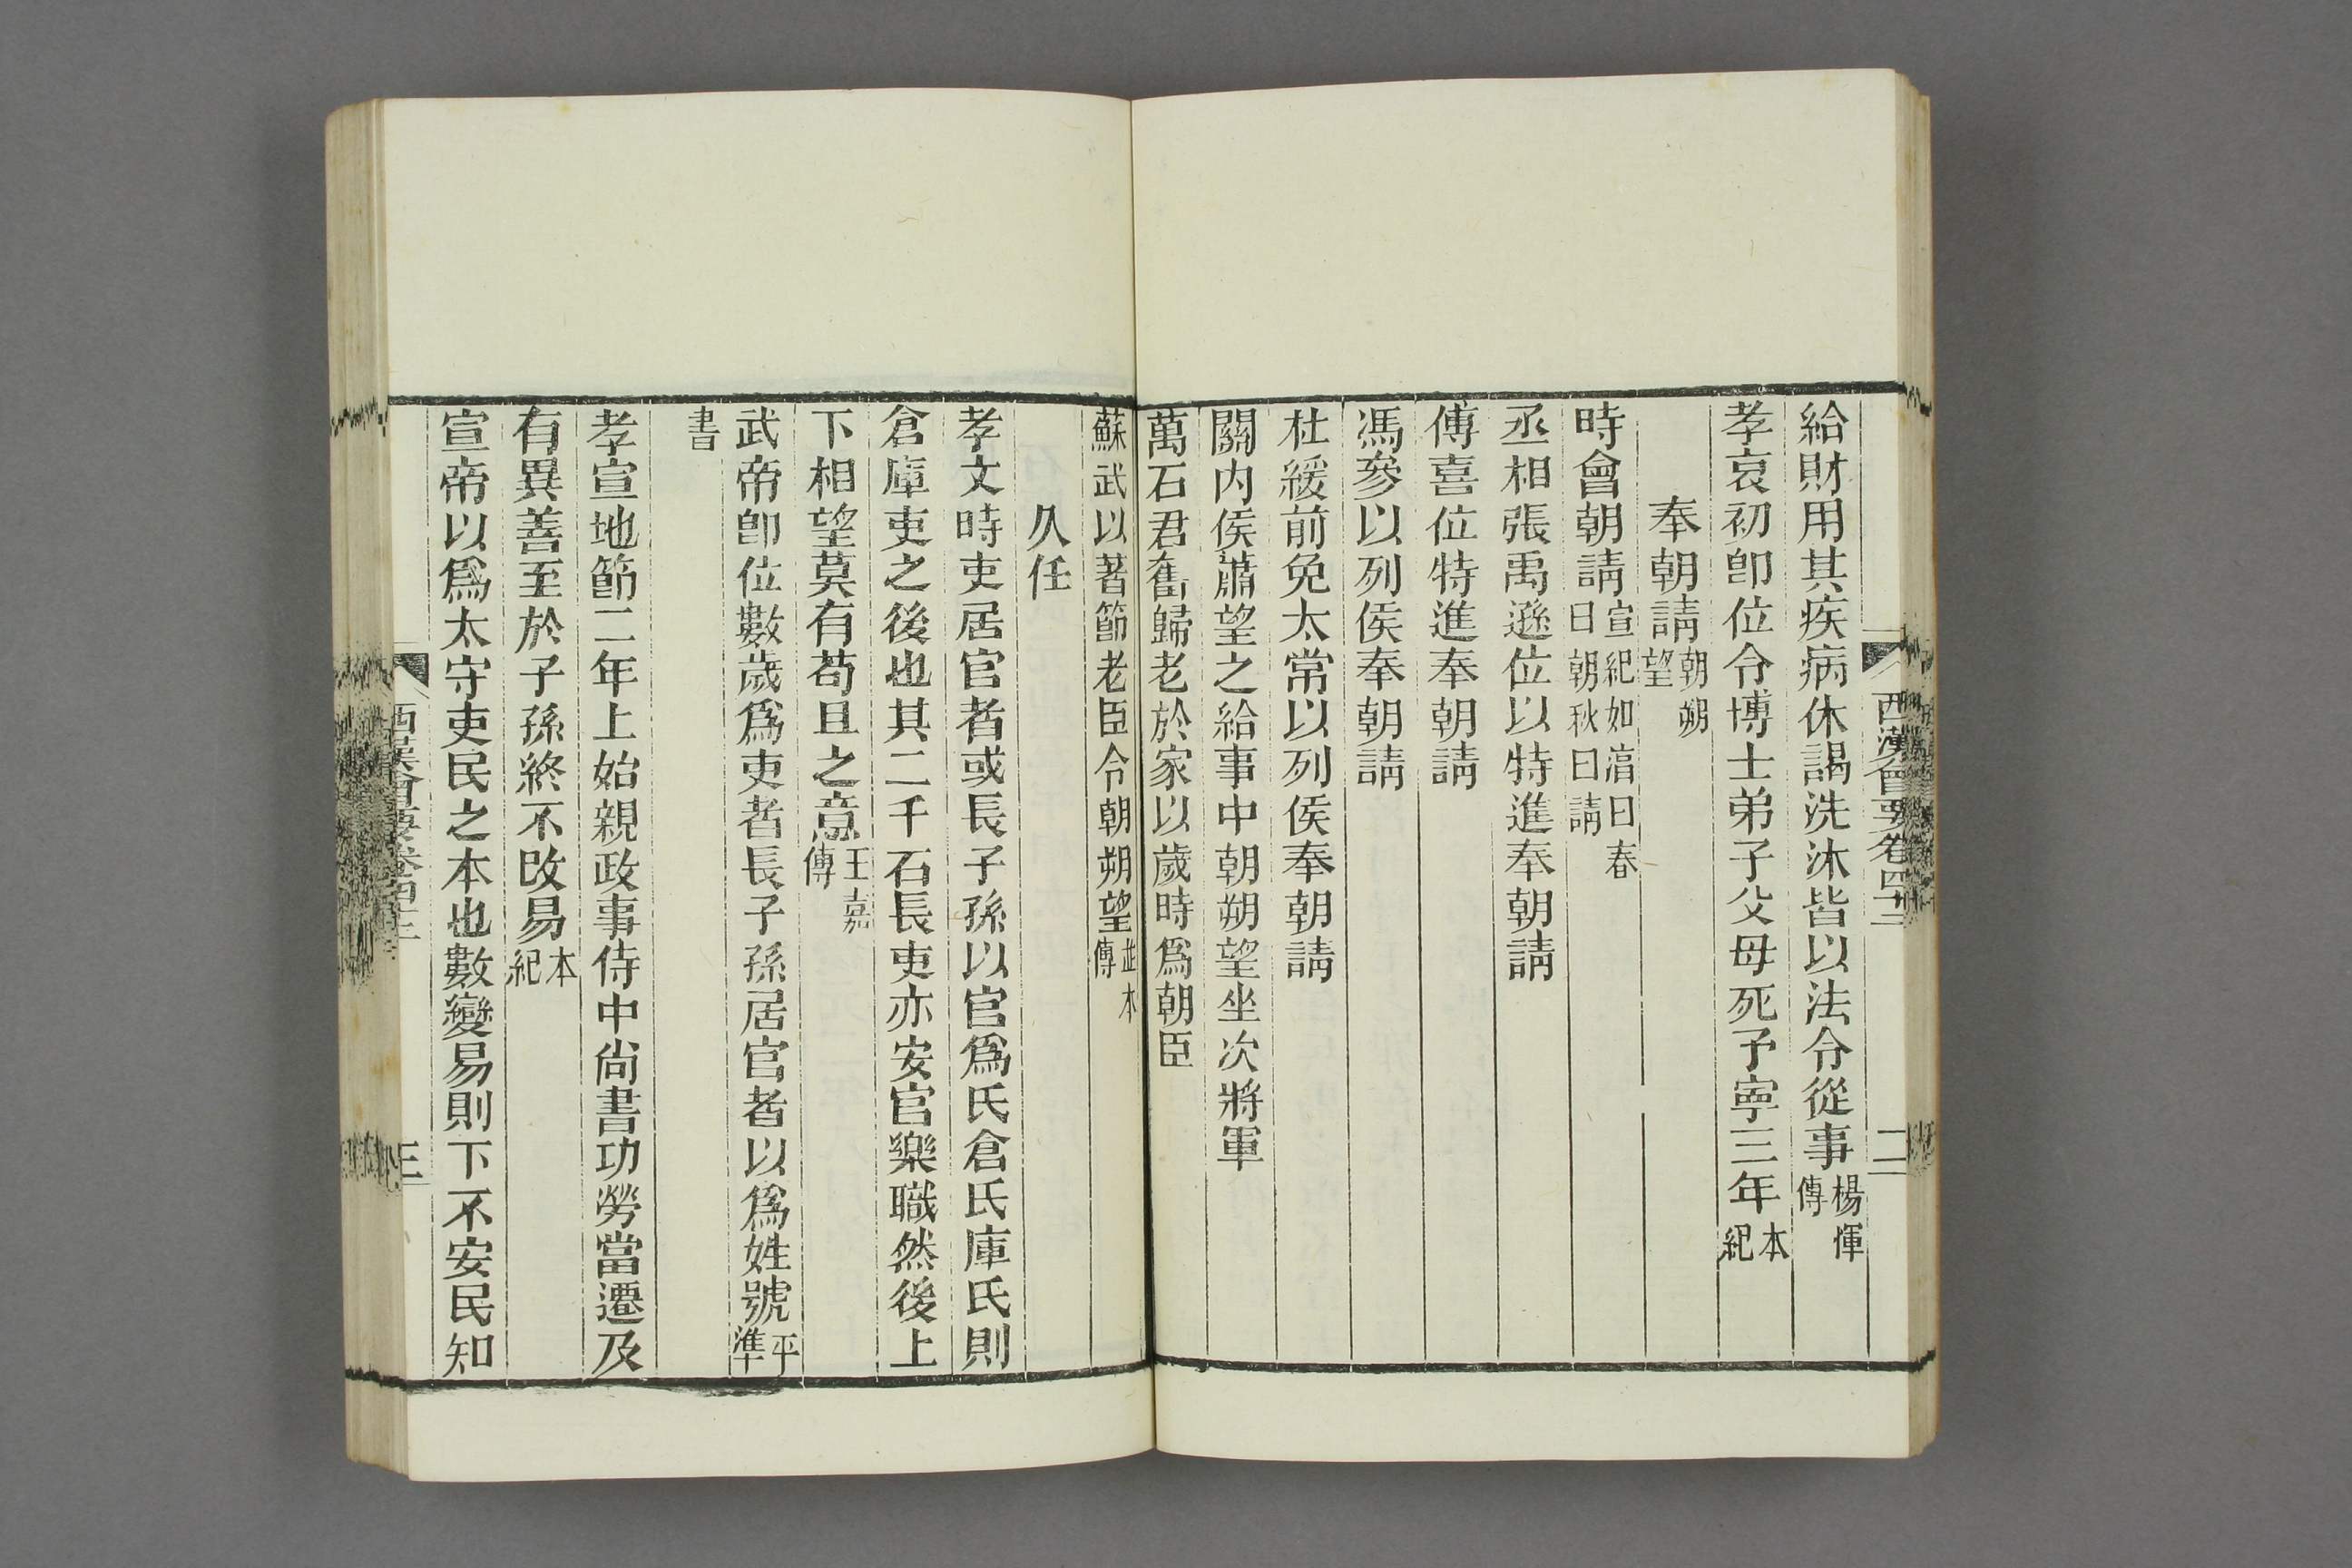 西漢會要卷四十三
二
給財用其疾病休謁洗沐皆以法令從事楊惲傳
孝哀初卽位令博士弟子父母死予寧三年本紀
奉朝請朝朔望
時會朝請宣紀如湻曰春曰朝秋曰請
丞相張禹遜位以特進奉朝請
傅喜位特進奉朝請
馮參以列侯奉朝請
杜緩前免太常以列侯奉朝請
關内侯蕭望之給事中朝朔望坐次將軍
萬石君奮歸老於家以歲時爲朝臣
蘇武以著節老臣令朝朔望並本傳
久任
孝文時吏居官者或長子孫以官爲氏倉氏庫氏則
倉庫吏之後也其二千石長吏亦安官樂職然後上
下相望莫有苟且之意王嘉傳
武帝卽位數歲爲吏者長子孫居官者以爲姓號平準
書
孝宣地節二年上始親政事侍中尚書功勞當遷及
有異善至於子孫終不改易本紀
宣帝以爲太守吏民之本也數變易則下不安民知
西漢會要卷四十三
三